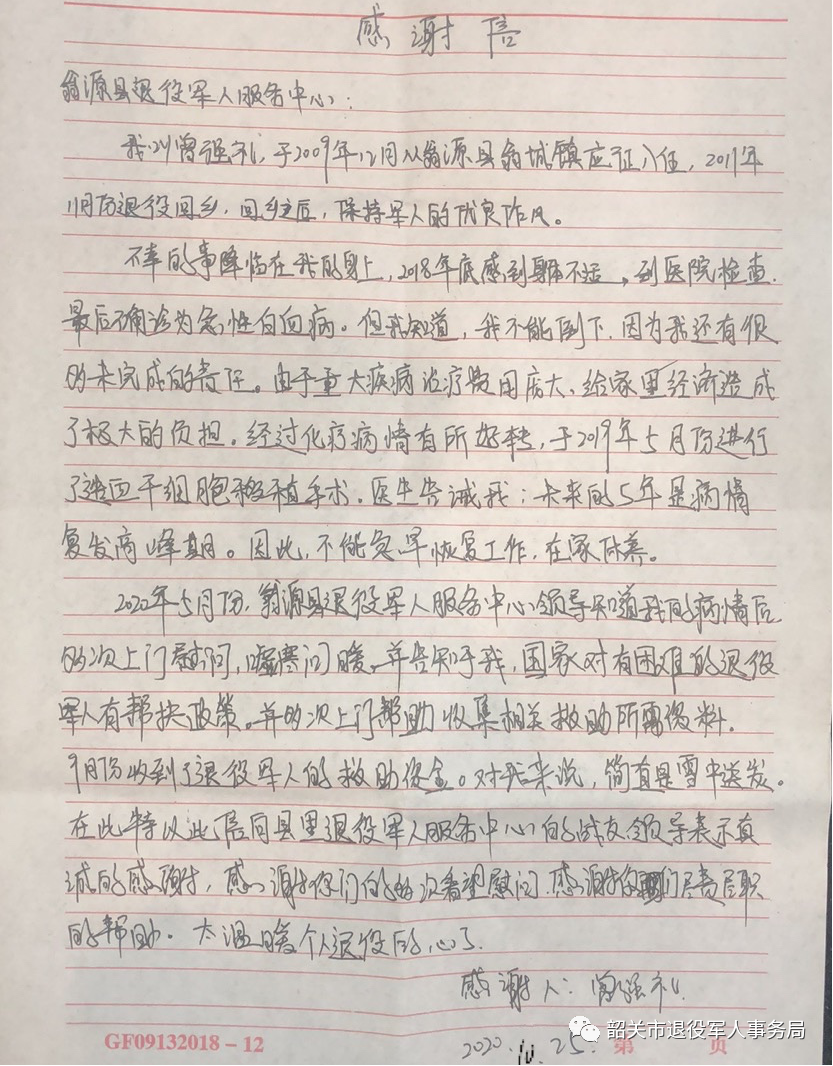 感谢信
翁源县退役军人服务中心：
我叫曾强礼，于2009年12月从翁源县翁城镇应征入伍，2011年
11月份退役回乡，回乡之后，保持军人的优良作风。
不幸的事降临在我的身上，2018年底感到身体不适，到医院检查.
最后确诊为急性白血病。但我知道，我不能倒下，因为我还有很
多未完成的责任。由于重大疾病治疗费用庞大，给家里经济造成
了极大的负担。经过化疗病情有所好转，于2019年5月份进行
了造血干细胞移植手术。医生告诫我：未来的5年是病情
复发高峰期。因此，不能急早恢复工作，在家休养。
2020年5月份，翁源县退役军人服务中心领导知道我的病情后
多次上门慰问，嘘寒问暖。并告知于我，国家对有困难的退役
军人有帮扶政策。并多次上门帮助收集相关救助所需资料.
9月份收到了退役军人的救助资金。对我来说，简直是雪中送炭。
在此特以此信向县里退役军人服务中心的战友领导表示真
诚的感谢，感谢你们的多次看望慰问.感谢你们尽责尽职
的帮助。太温暖个人退役的心了.
感谢人：曾强礼
2020.10.25.
GF09132018－12
第 页
韶关市退役军人事务局